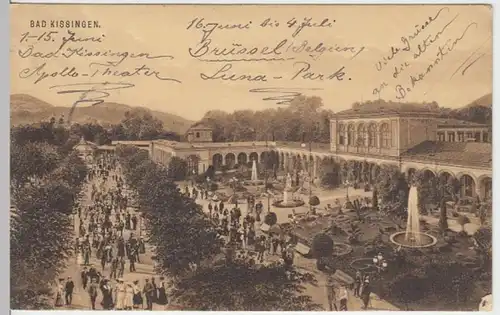 BAD KISSINGEN.
1.-15. Juni
Bad Kissingen
Apollo-Theater
16. Juni bis 4 Juli
Brüssel (Belgien)
Luna-Park.
Viele Grüsse
an die alten
Bekannten